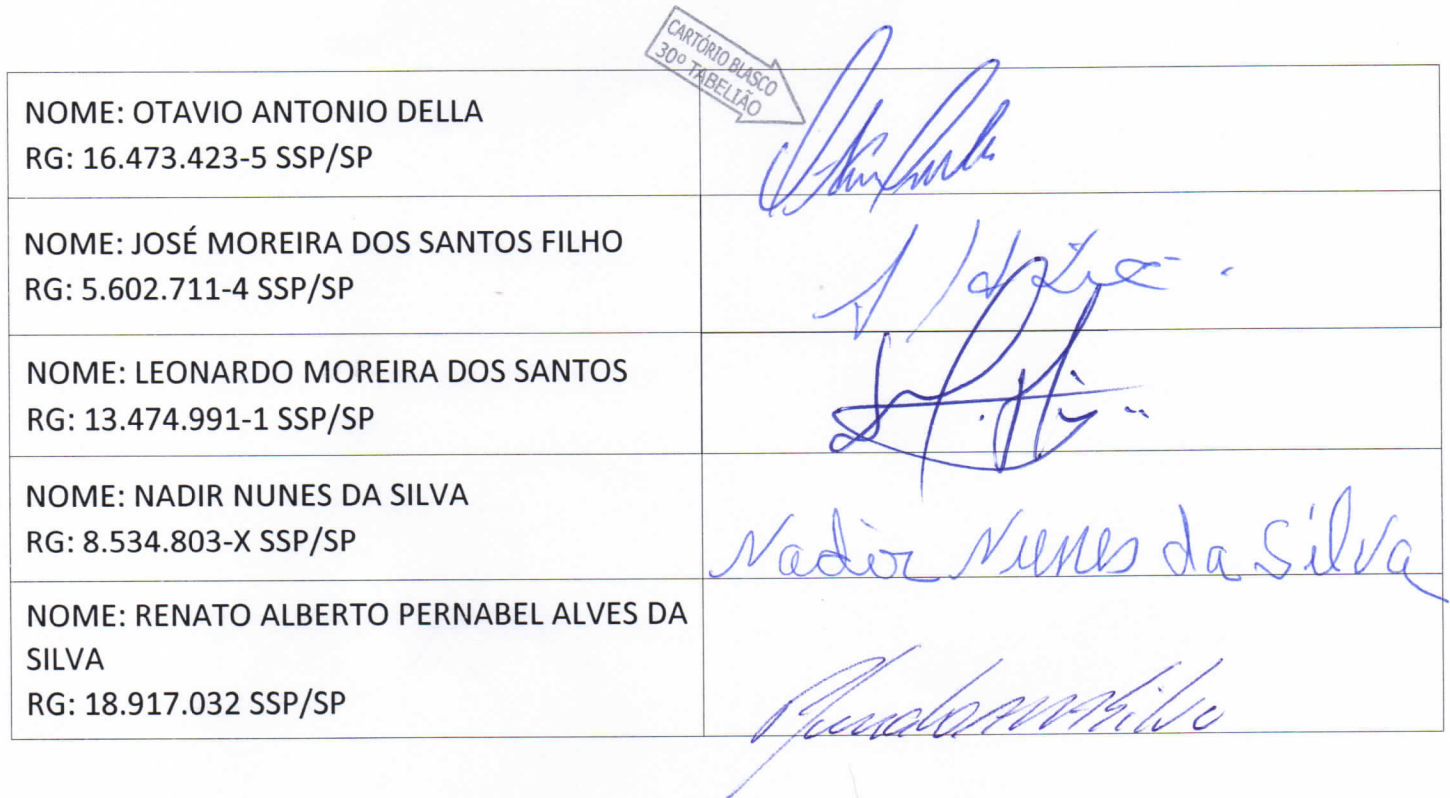 CARTÓRIO BLASCO
30º TABELIÃO
NOME: OTAVIO ANTONIO DELLA
RG: 16.473.423-5 SSP/SP
NOME: JOSÉ MOREIRA DOS SANTOS FILHO
RG: 5.602.711-4 SSP/SP
NOME: LEONARDO MOREIRA DOS SANTOS
RG: 13.474.991-1 SSP/SP
NOME: NADIR NUNES DA SILVA
RG: 8.534.803-X SSP/SP
Nadir Nunes da Silva
NOME: RENATO ALBERTO PERNABEL ALVES DA
SILVA
RG: 18.917.032 SSP/SP